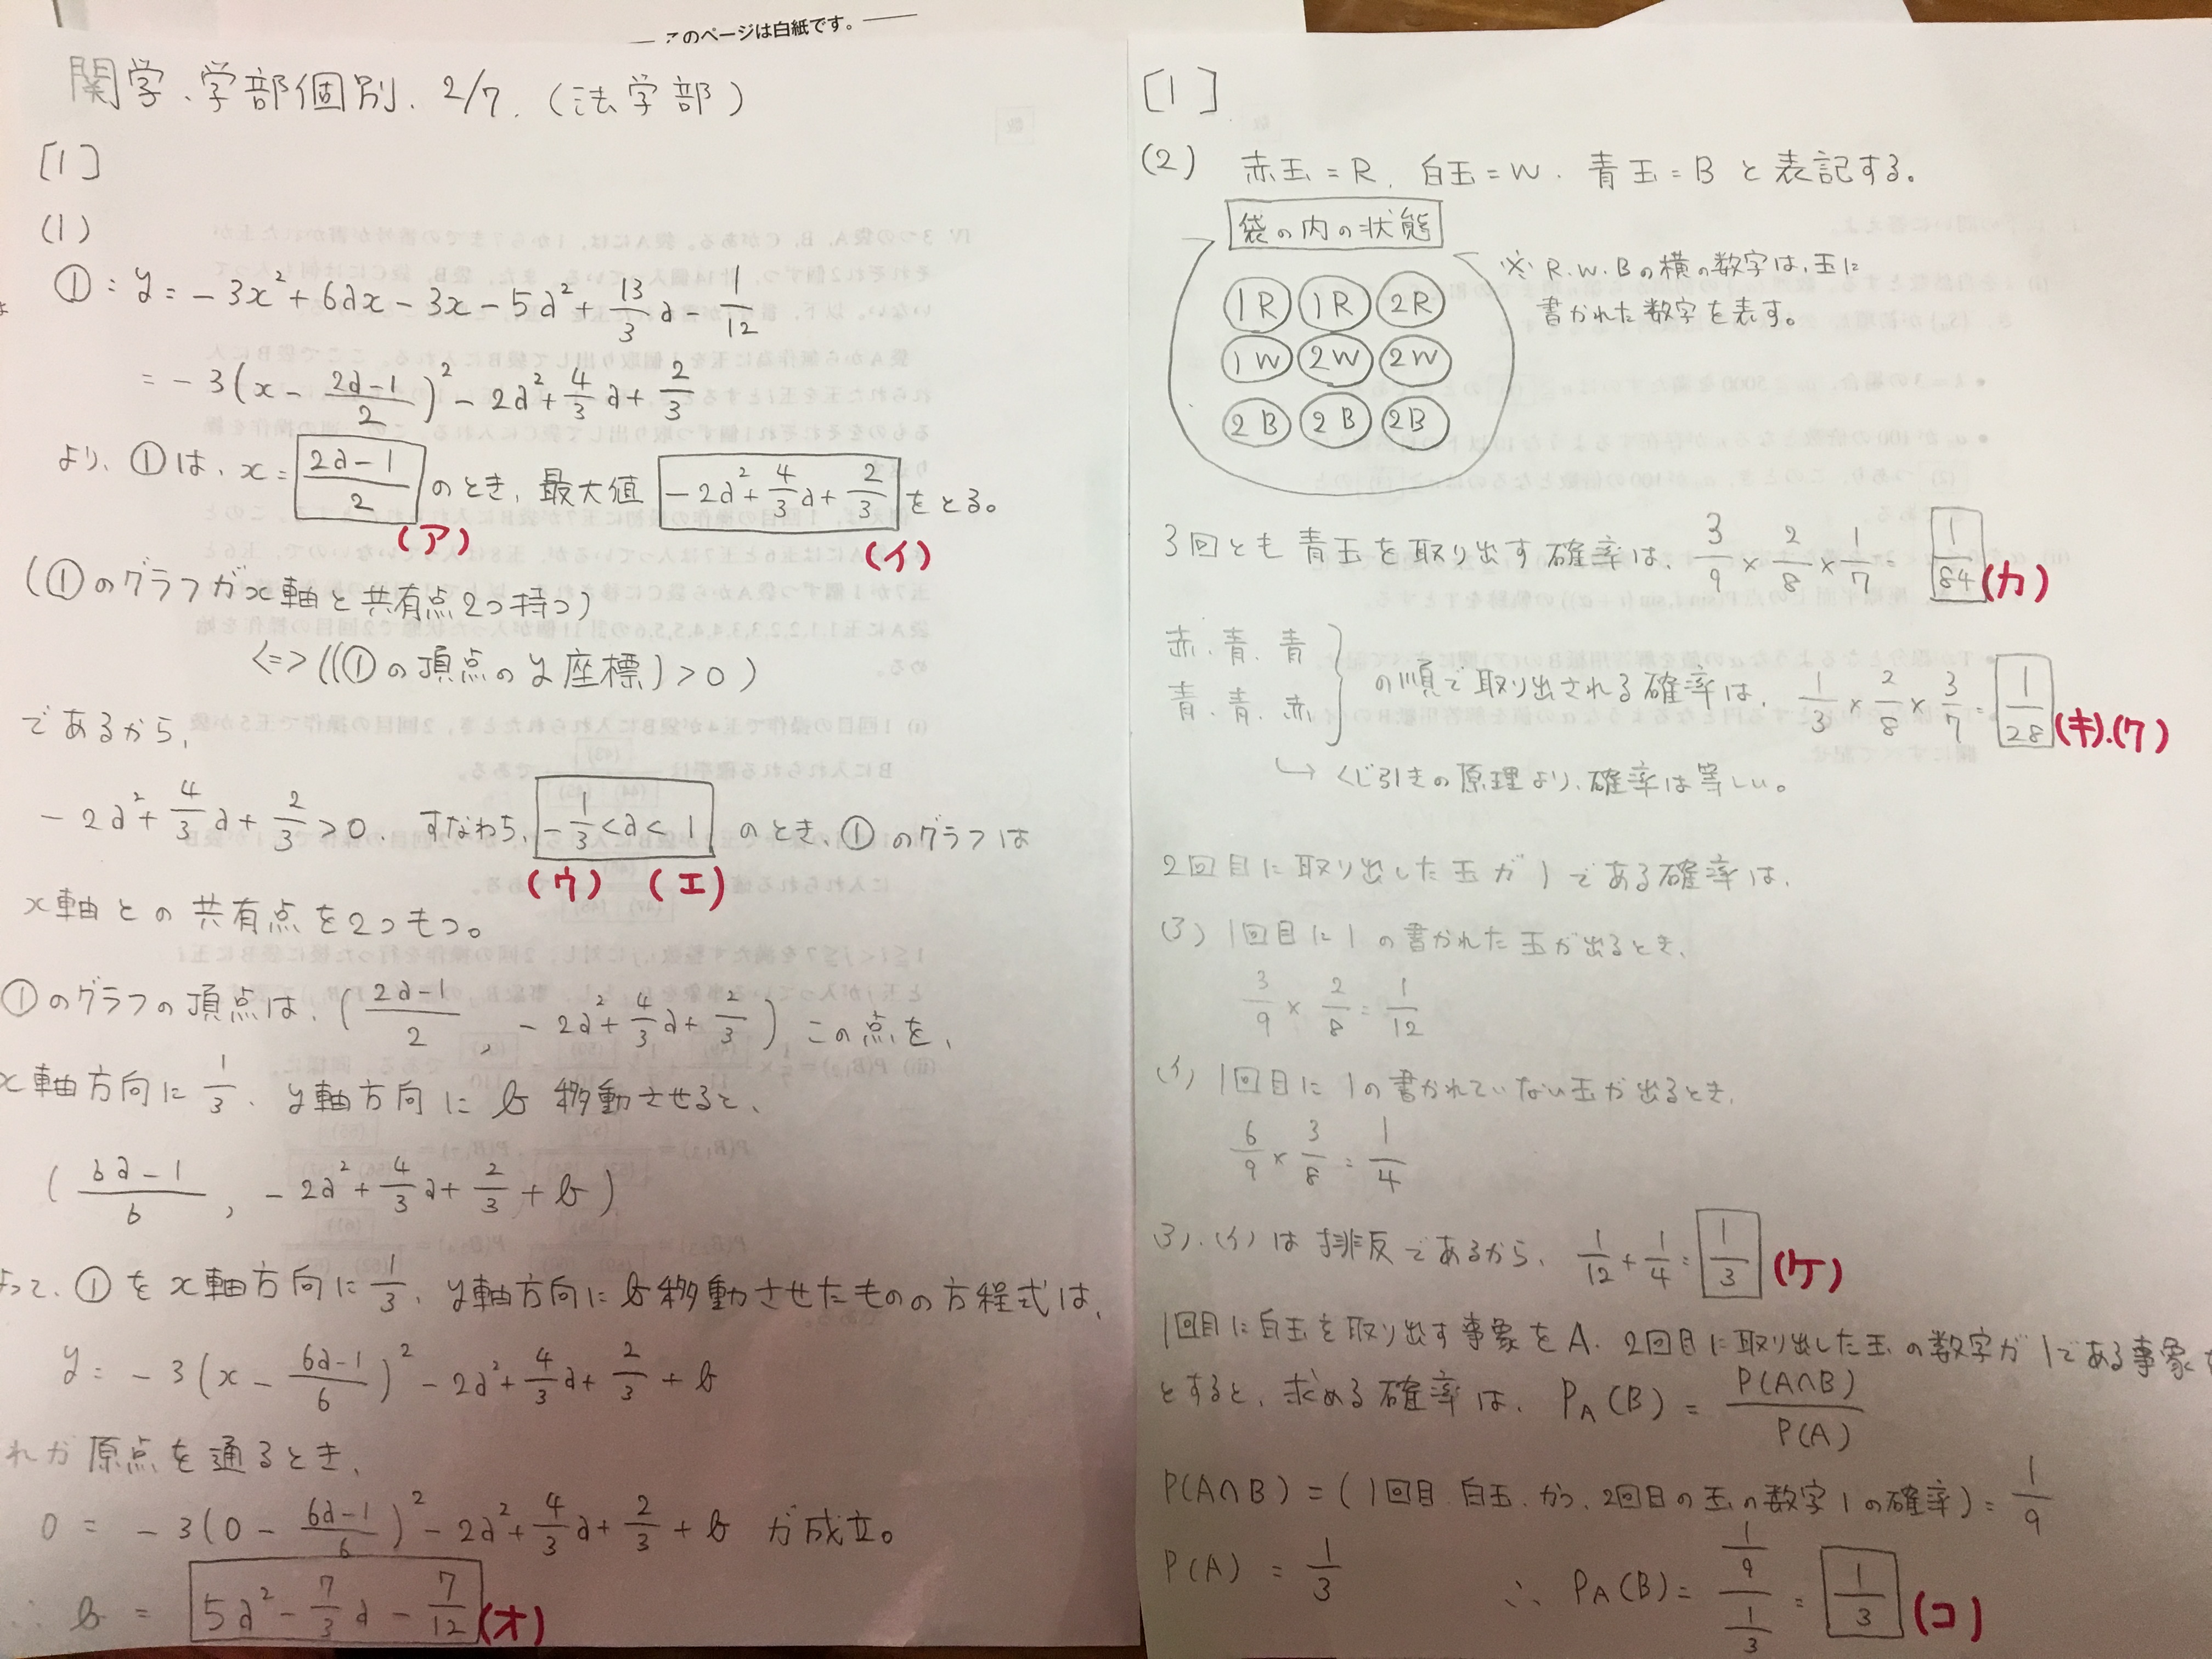 このページは白紙です。
関学、学部個別、2/7、(法学部)
[1]
(1)
①:y=-3x²+6ax-3x-5a²+13/3a-1/12
=-3(x-(2a-1)/2)²-2a²+4/3a+2/3
より、①は、x=(2a-1)/2のとき、最大値 -2a²+4/3a+2/3をとる。
(ア) (イ)
(①のグラフがx軸と共有点2つ持つ)
<=>((①の頂点のy座標)>0)
であるから、
-2a²+4/3a+2/3>0、すなわち、-1/3<a<1 のとき、①のグラフは
(ウ) (エ)
x軸との共有点を2つもつ。
①のグラフの頂点は、((2a-1)/2, -2a²+4/3a+2/3) この点を、
x軸方向に1/3、y軸方向にb移動させると、
((6a-1)/6, -2a²+4/3a+2/3+b)
よって、①をx軸方向に1/3、y軸方向にb移動させたものの方程式は、
y=-3(x-(6a-1)/6)²-2a²+4/3a+2/3+b
れが原点を通るとき、
0=-3(0-(6a-1)/6)²-2a²+4/3a+2/3+b が成立。
∴b=5a²-7/3a-7/12(オ)
[1]
(2) 赤玉=R、白玉=W、青玉=Bと表記する。
袋の内の状態
※R.W.Bの横の数字は、玉に
書かれた数字を表す。
1R 1R 2R
1W 2W 2W
2B 2B 2B
3回とも青玉を取り出す確率は、3/9×2/8×1/7=1/84(カ)
赤.青.青
青.青.赤
の順で取り出される確率は、1/3×2/8×3/7=1/28(キ).(ク)
↳くじ引きの原理より、確率は等しい。
2回目に取り出した玉が1である確率は、
(ア)1回目に1の書かれた玉が出るとき、
3/9×2/8=1/12
(イ)1回目に1の書かれていない玉が出るとき、
6/9×3/8=1/4
ア).(イ)は排反であるから、1/12+1/4=1/3(ケ)
1回目に白玉を取り出す事象をA、2回目に取り出した玉の数字が1である事象を
とすると、求める確率は、P_A(B)=P(A∩B)/P(A)
P(A∩B)=(1回目、白玉、かつ、2回目の玉の数字1の確率)=1/9
P(A)=1/3 ∴P_A(B)=(1/9)/(1/3)=1/3(コ)